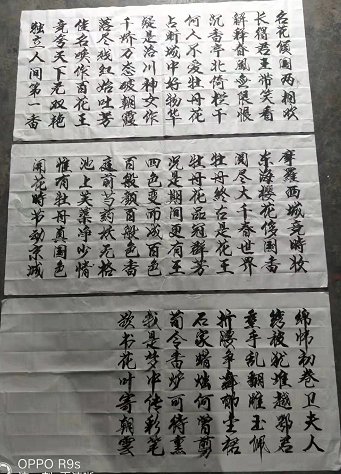 名花倾國两相欢
长得君王带笑看
解释春風无限恨
沉香亭北倚栏干
何人不爱牡丹花
占断城中好物华
疑是洛川神女作
千娇万态破朝霞
落尽残红始吐芳
佳名唤作百花王
竞夸天下无双艳
独立人间第一香
摩罗西域竞时妆
东海樱花侈国香
阅尽大千春世界
牡丹终古是花王
牡丹花品冠群芳
况是期间更有王
四色变而成百色
百般颜色百般香
庭前芍药妖无格
池上芙蕖净少情
惟有牡丹真國色
開花时节动京城
锦帏初卷卫夫人
绣被犹堆越鄂君
垂手乱翻雕玉佩
折腰争舞郁金裙
石家蜡烛何曾剪
荀令香炉可待熏
我是梦中传彩笔
欲书花叶寄朝雲
OPPO R9s